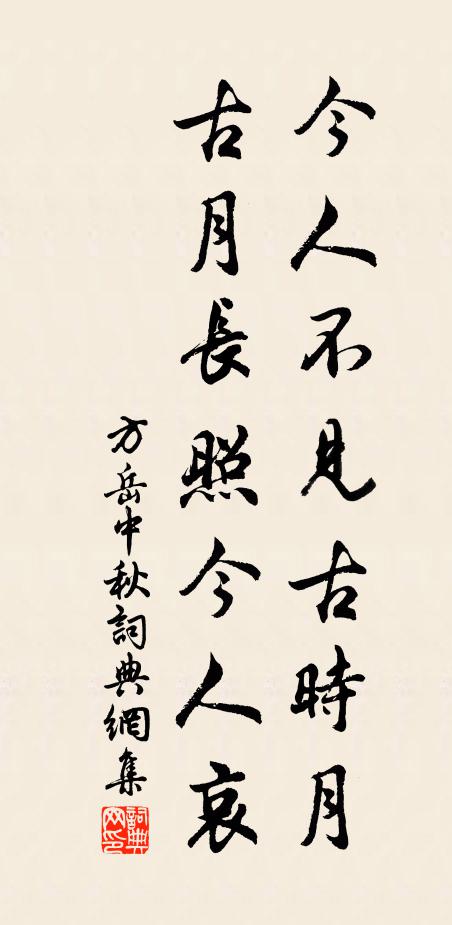 今人不見古時月
古月長照今人哀
方岳中秋詞典網集
詞典网印